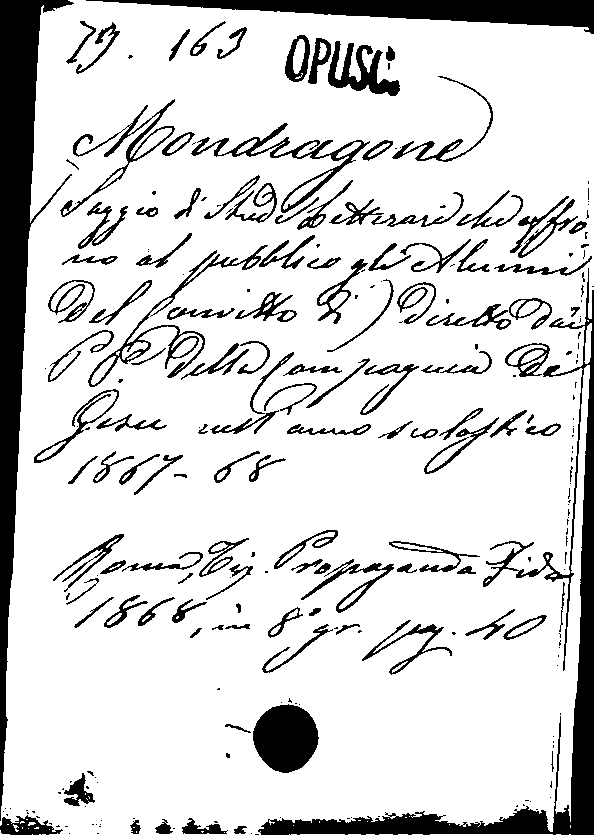 73. 163 OPUSC.
Mondragone
(Saggio di Studi Letterari che offro
no al pubblico gli Alunni
Del Convitto di) diretto dai
P.P. della Compagnia di
Gesu nell'anno scolastico
1867-68
Roma, Tip. Propaganda Fide
1868, in 8° gr. pag. 40